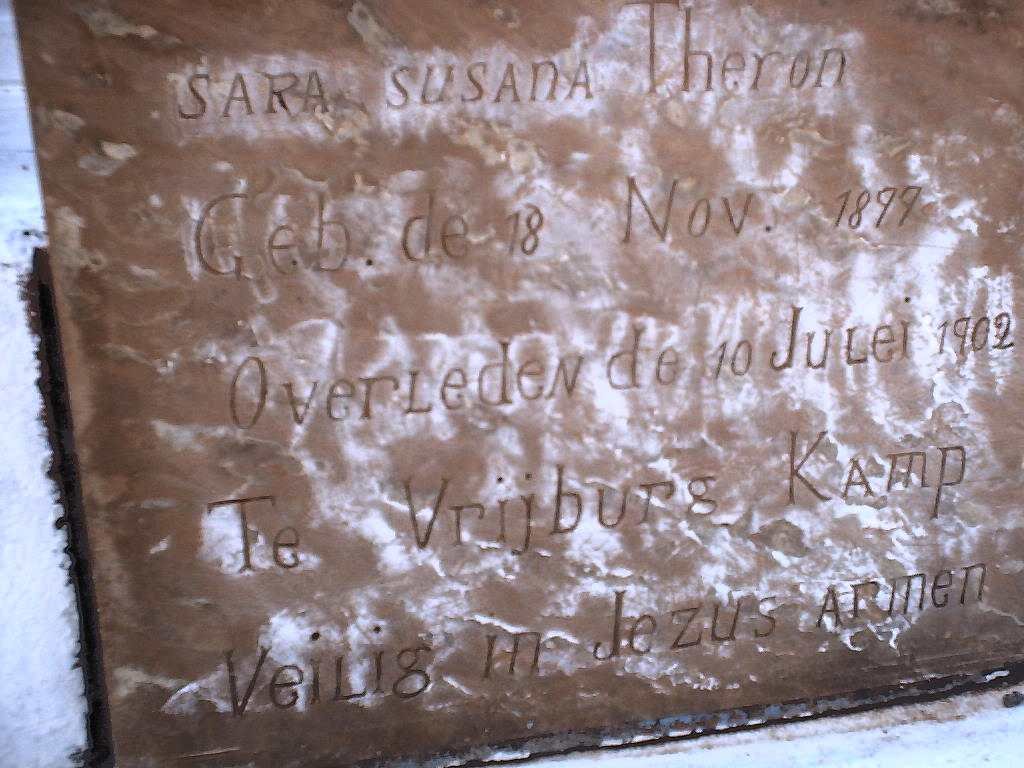 SARA SUSANA Theron
Geb. de 18 Nov. 1899
Overleden de 10 Julei 1902
Te Vrijburg Kamp
Veilig in Jezus armen